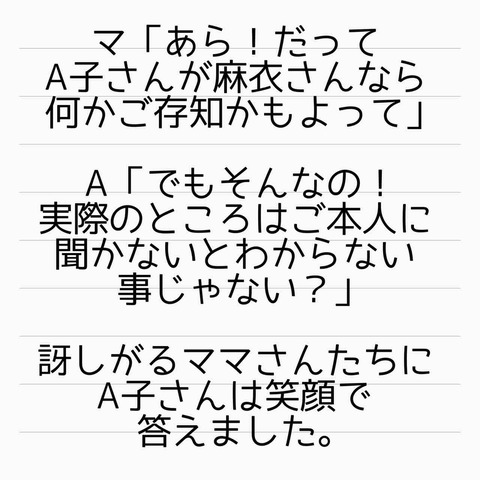 マ「あら！だって
A子さんが麻衣さんなら
何かご存知かもよって」
A「でもそんなの！
実際のところはご本人に
聞かないとわからない
事じゃない？」
訝しがるママさんたちに
A子さんは笑顔で
答えました。